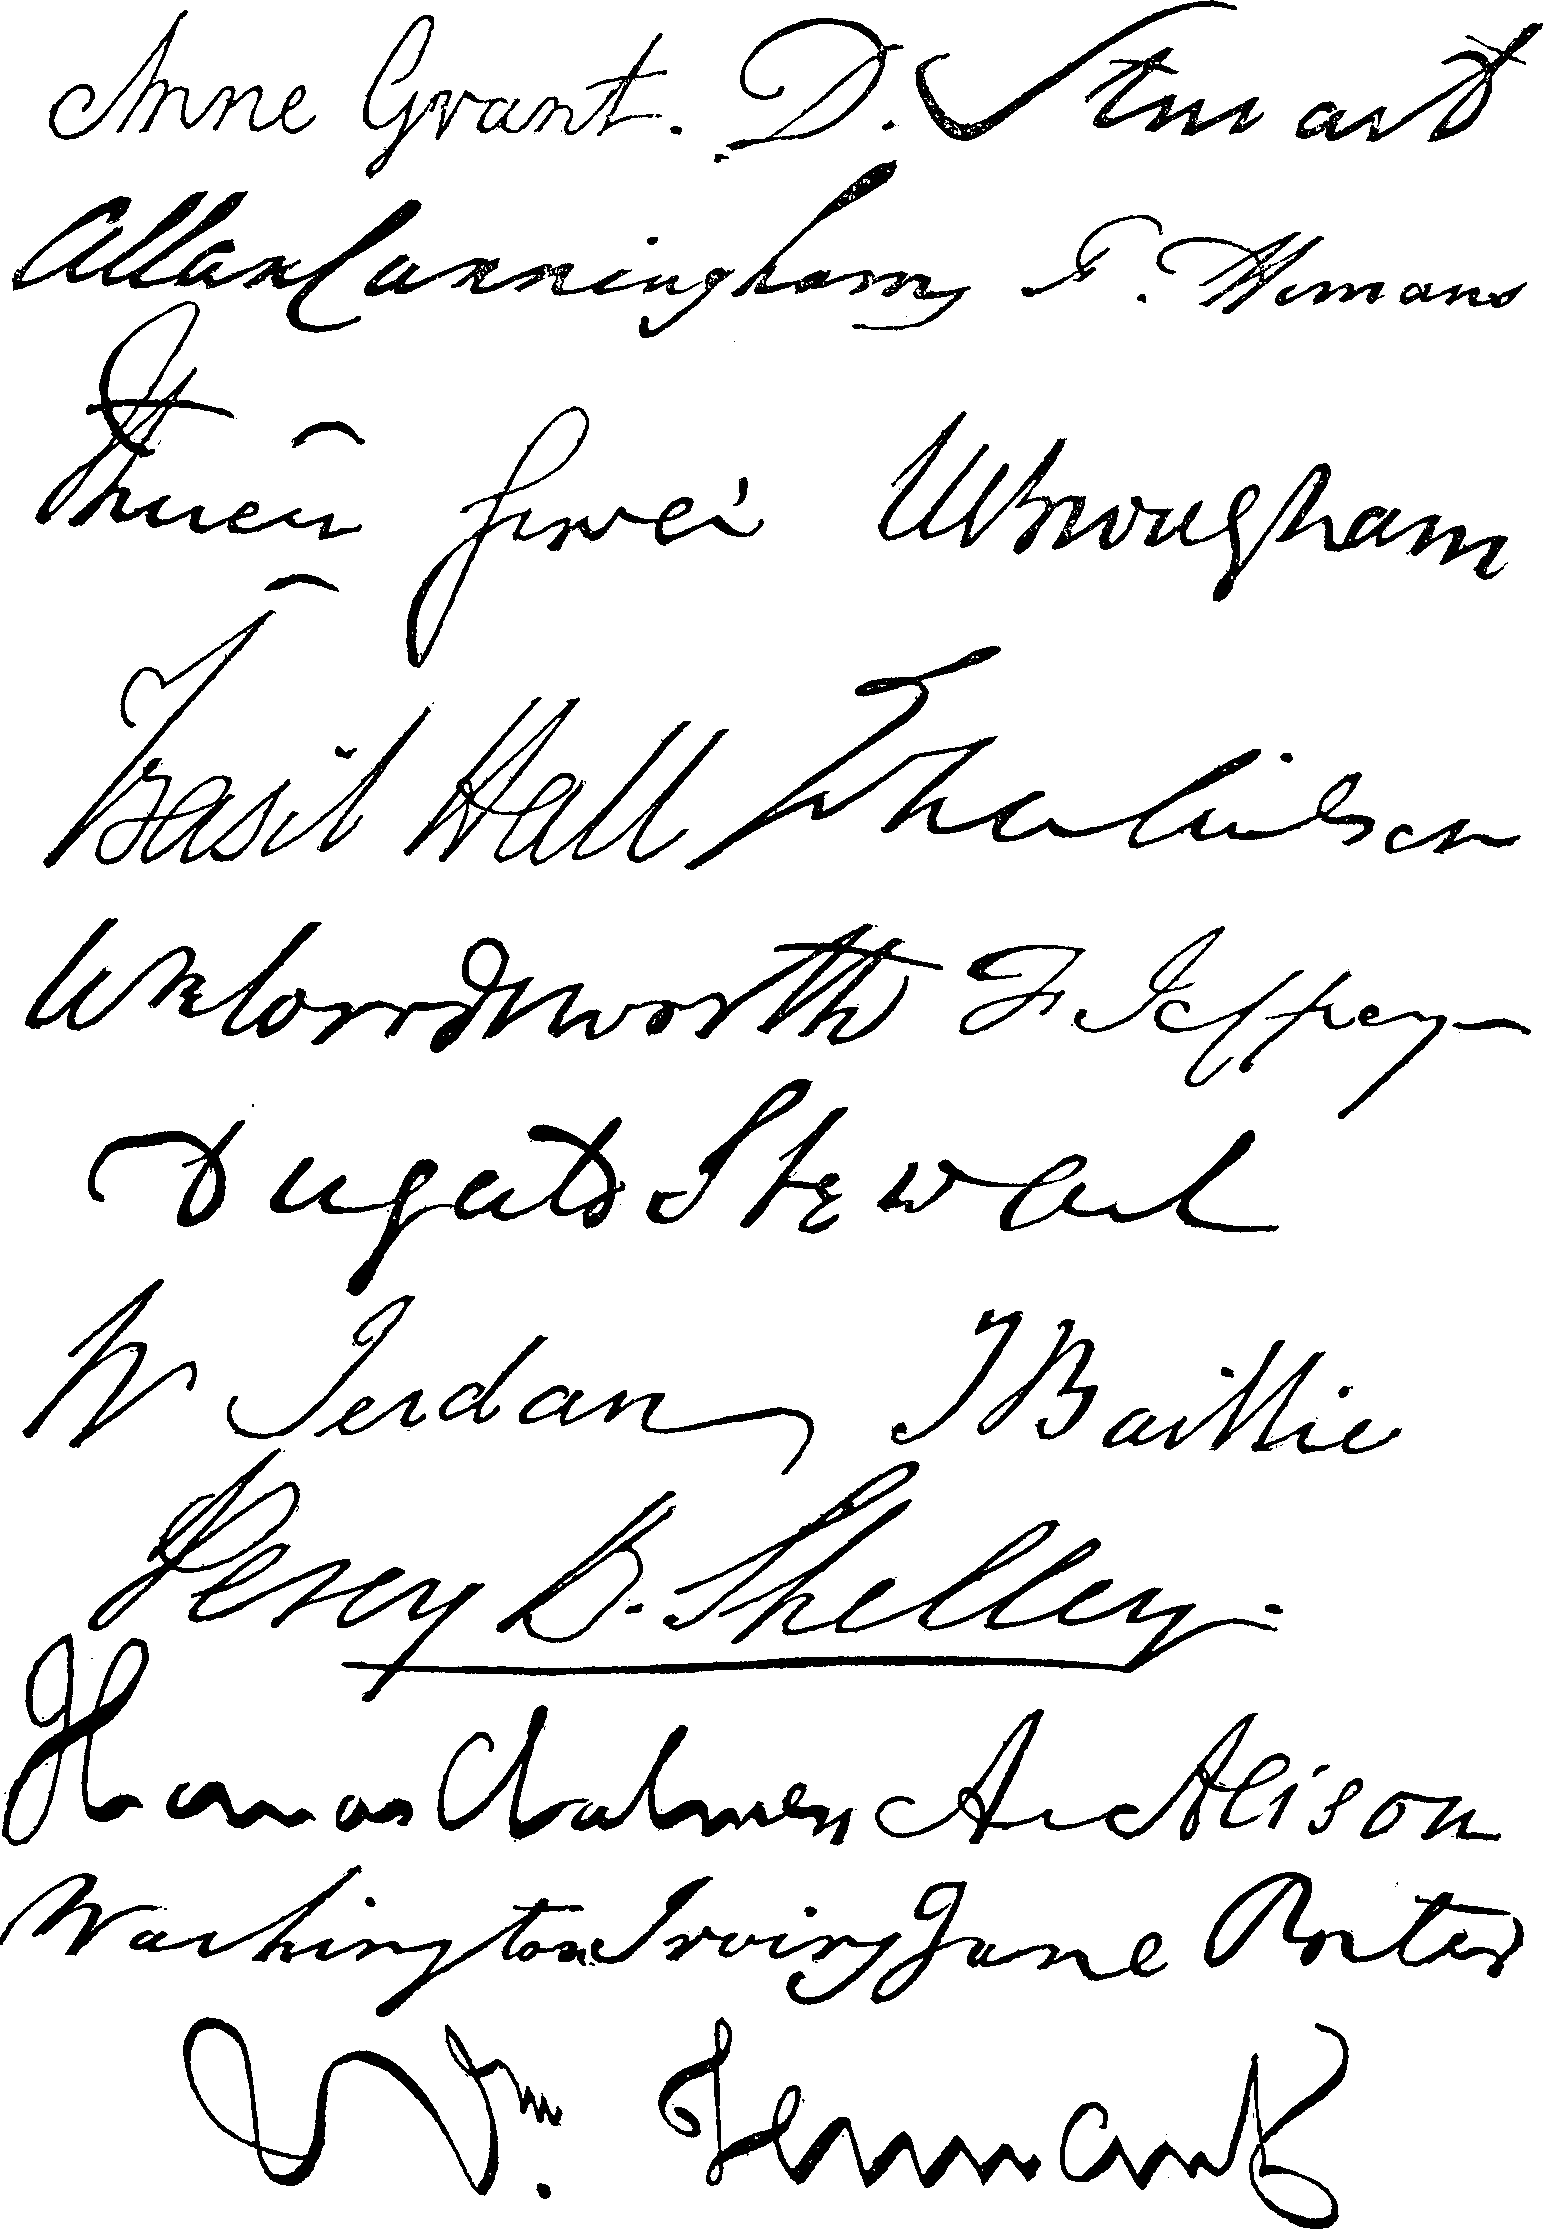 Anne Grant. D. Stuart
Allan Cunningham F. Hemans
H Brougham
Basil Hall John Wilson
Wm Wordsworth F Jeffrey
Dugald Stewart
W Jerdan J Baillie
Percy B. Shelley.
Thomas Chalmers Ar Alison
Washington Irving Jane Porter
Wm. Tennant